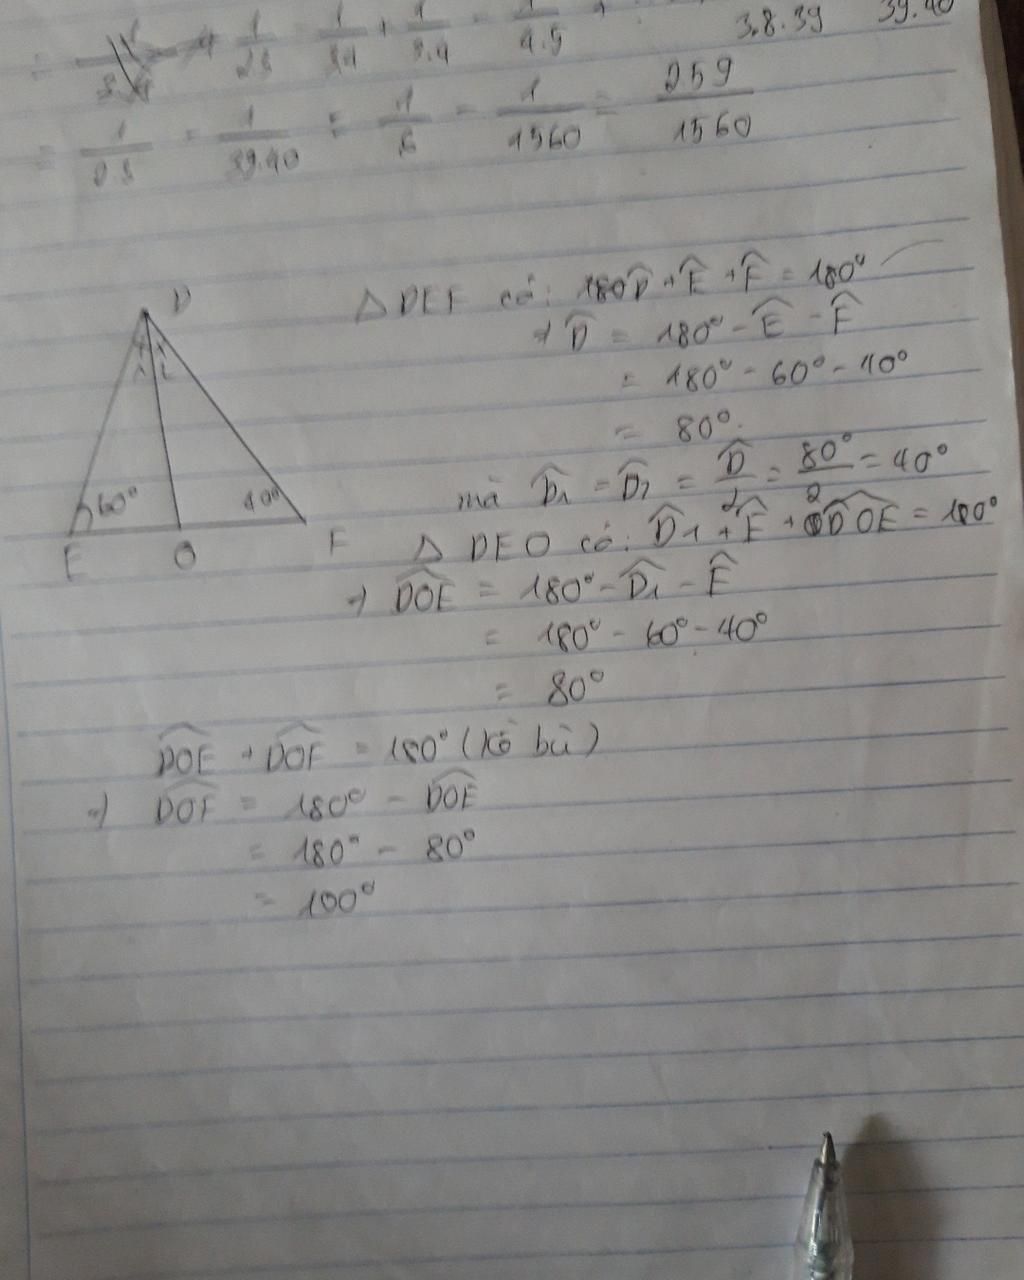 = 1/23 1/34 + 1/3.4 - 1/4.5 + 3.8.39 39.40
= 1/2.3 - 1/39.40 = 1/6 - 1/1560 = 259/1560
D
△ DEF có: 180D̂ + Ê + F̂ = 180°
=> D̂ = 180° - Ê - F̂
1 2
= 180° - 60° - 40°
= 80°.
60° 40°
mà D̂₁ = D̂₂ = D̂/2 = 80°/2 = 40°
E O F
△ DEO có: D̂₁ + Ê + DOE = 180°
=> DOE = 180° - D̂₁ - Ê
= 180° - 60° - 40°
= 80°
DOE + DOF = 180° (kề bù)
=> DOF = 180° - DOE
= 180° - 80°
= 100°